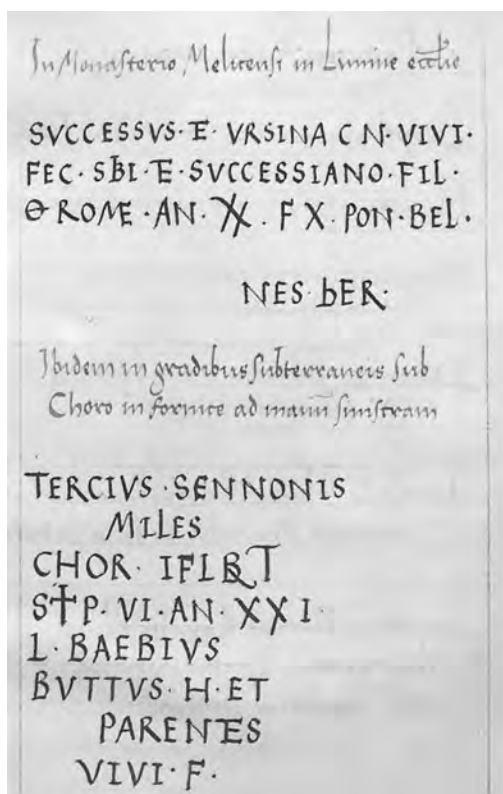 In Monasterio Melicensi in Limine eccl̄ie
SVCCESSVS·E·VRSINA C N·VIVI·
FEC·SBI·E·SVCCESSIANO·FIL·
Θ ROME·AN·XX. F X. PON·BEL·
NES·bER·
Ibidem in gradibus subterraneis sub
Choro in fornice ad manū sinistram
TERCIVS·SENNONIS
MILES
CHOR· IFLBRT
STP·VI·AN·XXI
L·BAEBIVS
BVTTVS·H·ET
PARENTES
VIVI·F·